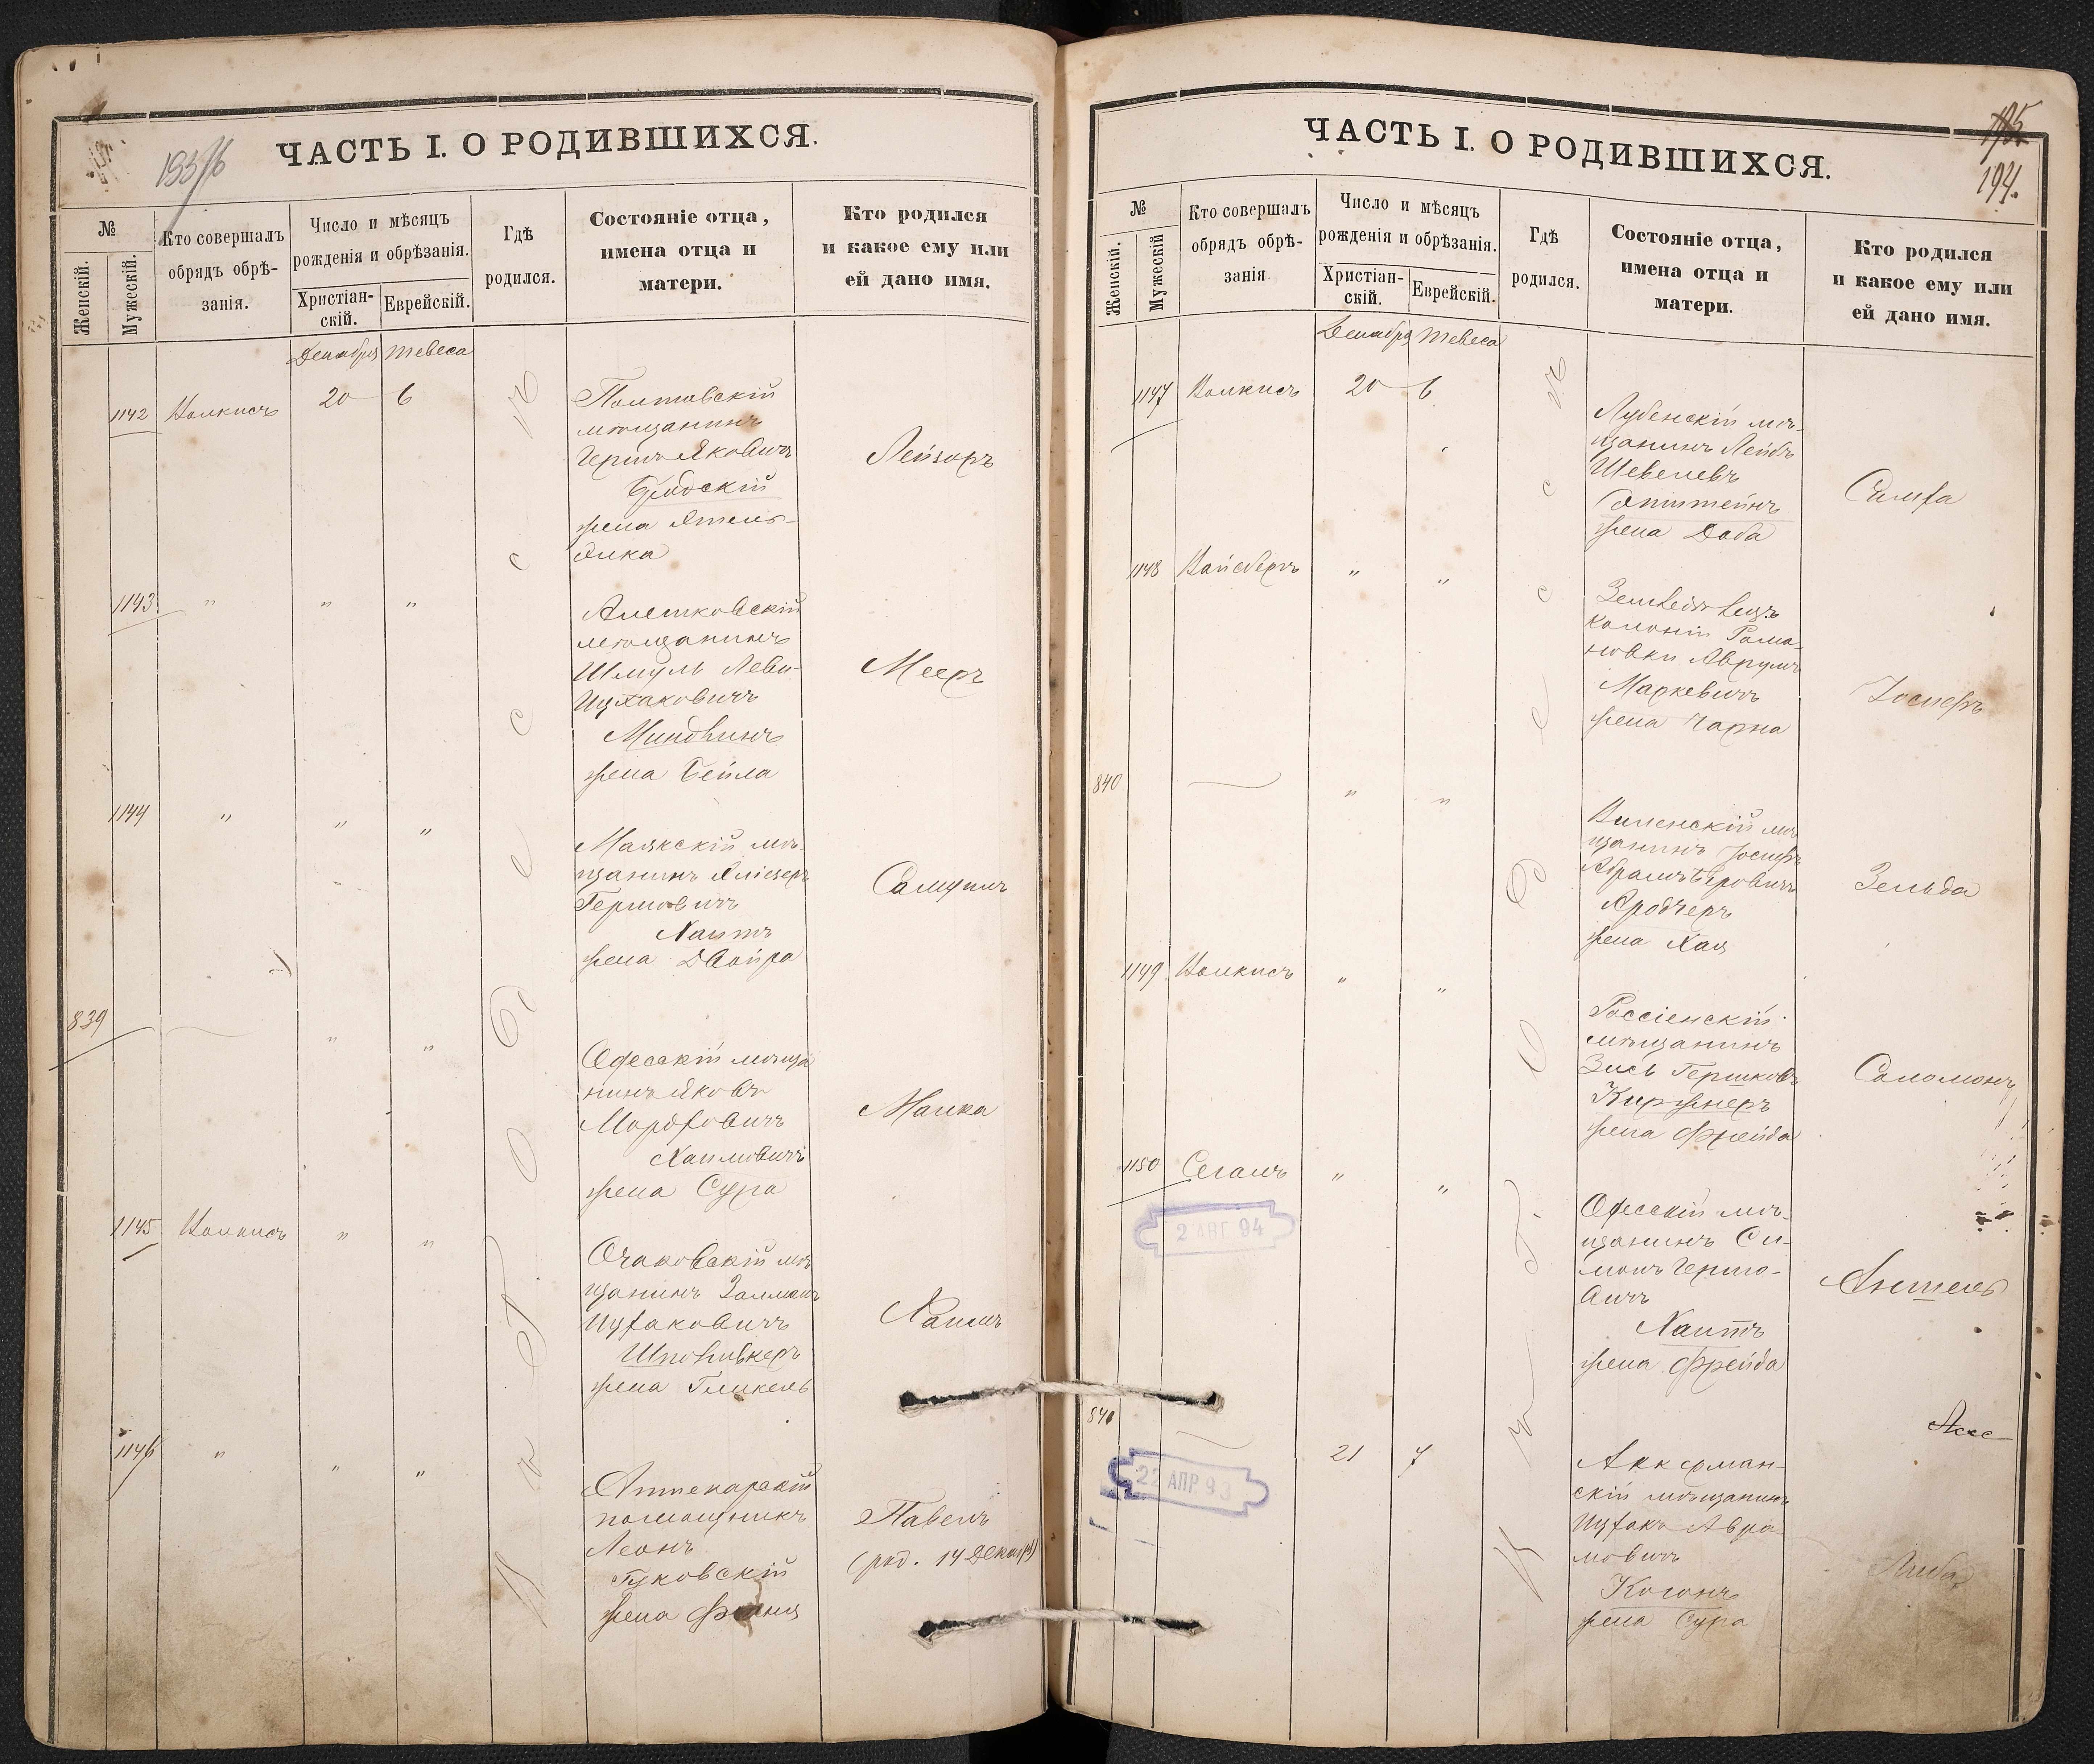 193/б
ЧАСТЬ I. О РОДИВШИХСЯ.
№
Женскій.
Мужескій.
Кто совершалъ
обрядъ обрѣ-
занія.
Число и мѣсяцъ
рожденія и обрѣзанія.
Христіан-
скій.
Еврейскій.
Гдѣ
родился.
Состояніе отца,
имена отца и
матери.
Кто родился
и какое ему или
ей дано имя.
Декабря Тевеса
въ Одессѣ
1142 20 6 Полтавскій
мѣщанинъ
Гершъ Яковичъ
Бродскій
жена Этель-
Элка
Лейзоръ
1143 " " " Алешковскій
мѣщанинъ
Шмуль Леви-
Ицхаковичъ
Миндлинъ
жена Бейла
Мееръ
1144 " " " Маякскій мѣ-
щанинъ Эліезеръ
Гершовичъ
Хаитъ
жена Двойра
Самуилъ
839 " " Одесскій мѣща
нинъ Яковъ
Мордковичъ
Хаимовичъ
жена Сура
Малка
1145 " " Очаковскій мѣ
щанинъ Залманъ
Ицхаковичъ
жена Гликель
Хаимъ
1146 " " " Аптекарскій
помощникъ
Леонъ
Гуковскій
жена
Павелъ
(род. 14 Декабря)
194.
ЧАСТЬ I. О РОДИВШИХСЯ.
№
Женскій.
Мужескій
Кто совершалъ
обрядъ обрѣ-
занія
Число и мѣсяцъ
рожденія и обрѣзанія.
Христіан-
скій.
Еврейскій.
Гдѣ
родился.
Состояніе отца,
имена отца и
матери.
Кто родился
и какое ему или
ей дано имя.
Декабря Тевеса
въ Одессѣ
1147 20 6 Лубенскій мѣ-
щанинъ Лейбъ
Шевелевъ
жена Доба
Симха
1148 Вайсбергъ " " Земледѣлецъ
колоніи Рома-
новки Аврумъ
Маркевичъ
жена Чарна
Іосифъ
840 " " Виленскій мѣ
щанинъ Іосифъ
жена Хая
Зельда
1149 " " Россіенскій
мѣщанинъ
Зись Гершковъ
Киржнеръ
жена Фрейда
Соломонъ
1150 Сегалъ " " Одесскій мѣ-
щанинъ Си-
монъ Гершо-
вичъ
Хаитъ
жена Фрейда
Аншель
2 АВГ 94
841 21 7 Аккерман-
скій мѣщанинъ
Ицхакъ Авра
мовичъ
Когонъ
жена Сура
Либа
22 АПР 93